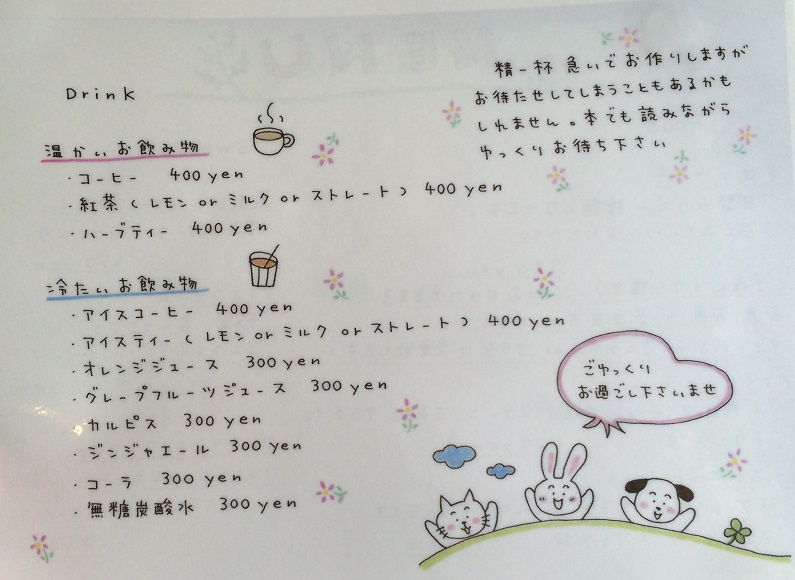 Drink
精一杯 急いで お作りしますが
お待たせしてしまうこともあるかも
しれません。本でも 読みながら
ゆっくり お待ち下さい
温かいお飲み物
・コーヒー 400 yen
・紅茶（レモン or ミルク or ストレート） 400 yen
・ハーブティー 400 yen
冷たいお飲み物
・アイスコーヒー 400 yen
・アイスティー（レモン or ミルク or ストレート） 400 yen
・オレンジジュース 300 yen
・グレープフルーツジュース 300 yen
・カルピス 300 yen
・ジンジャエール 300 yen
・コーラ 300 yen
・無糖炭酸水 300 yen
ごゆっくり
お過ごし下さいませ